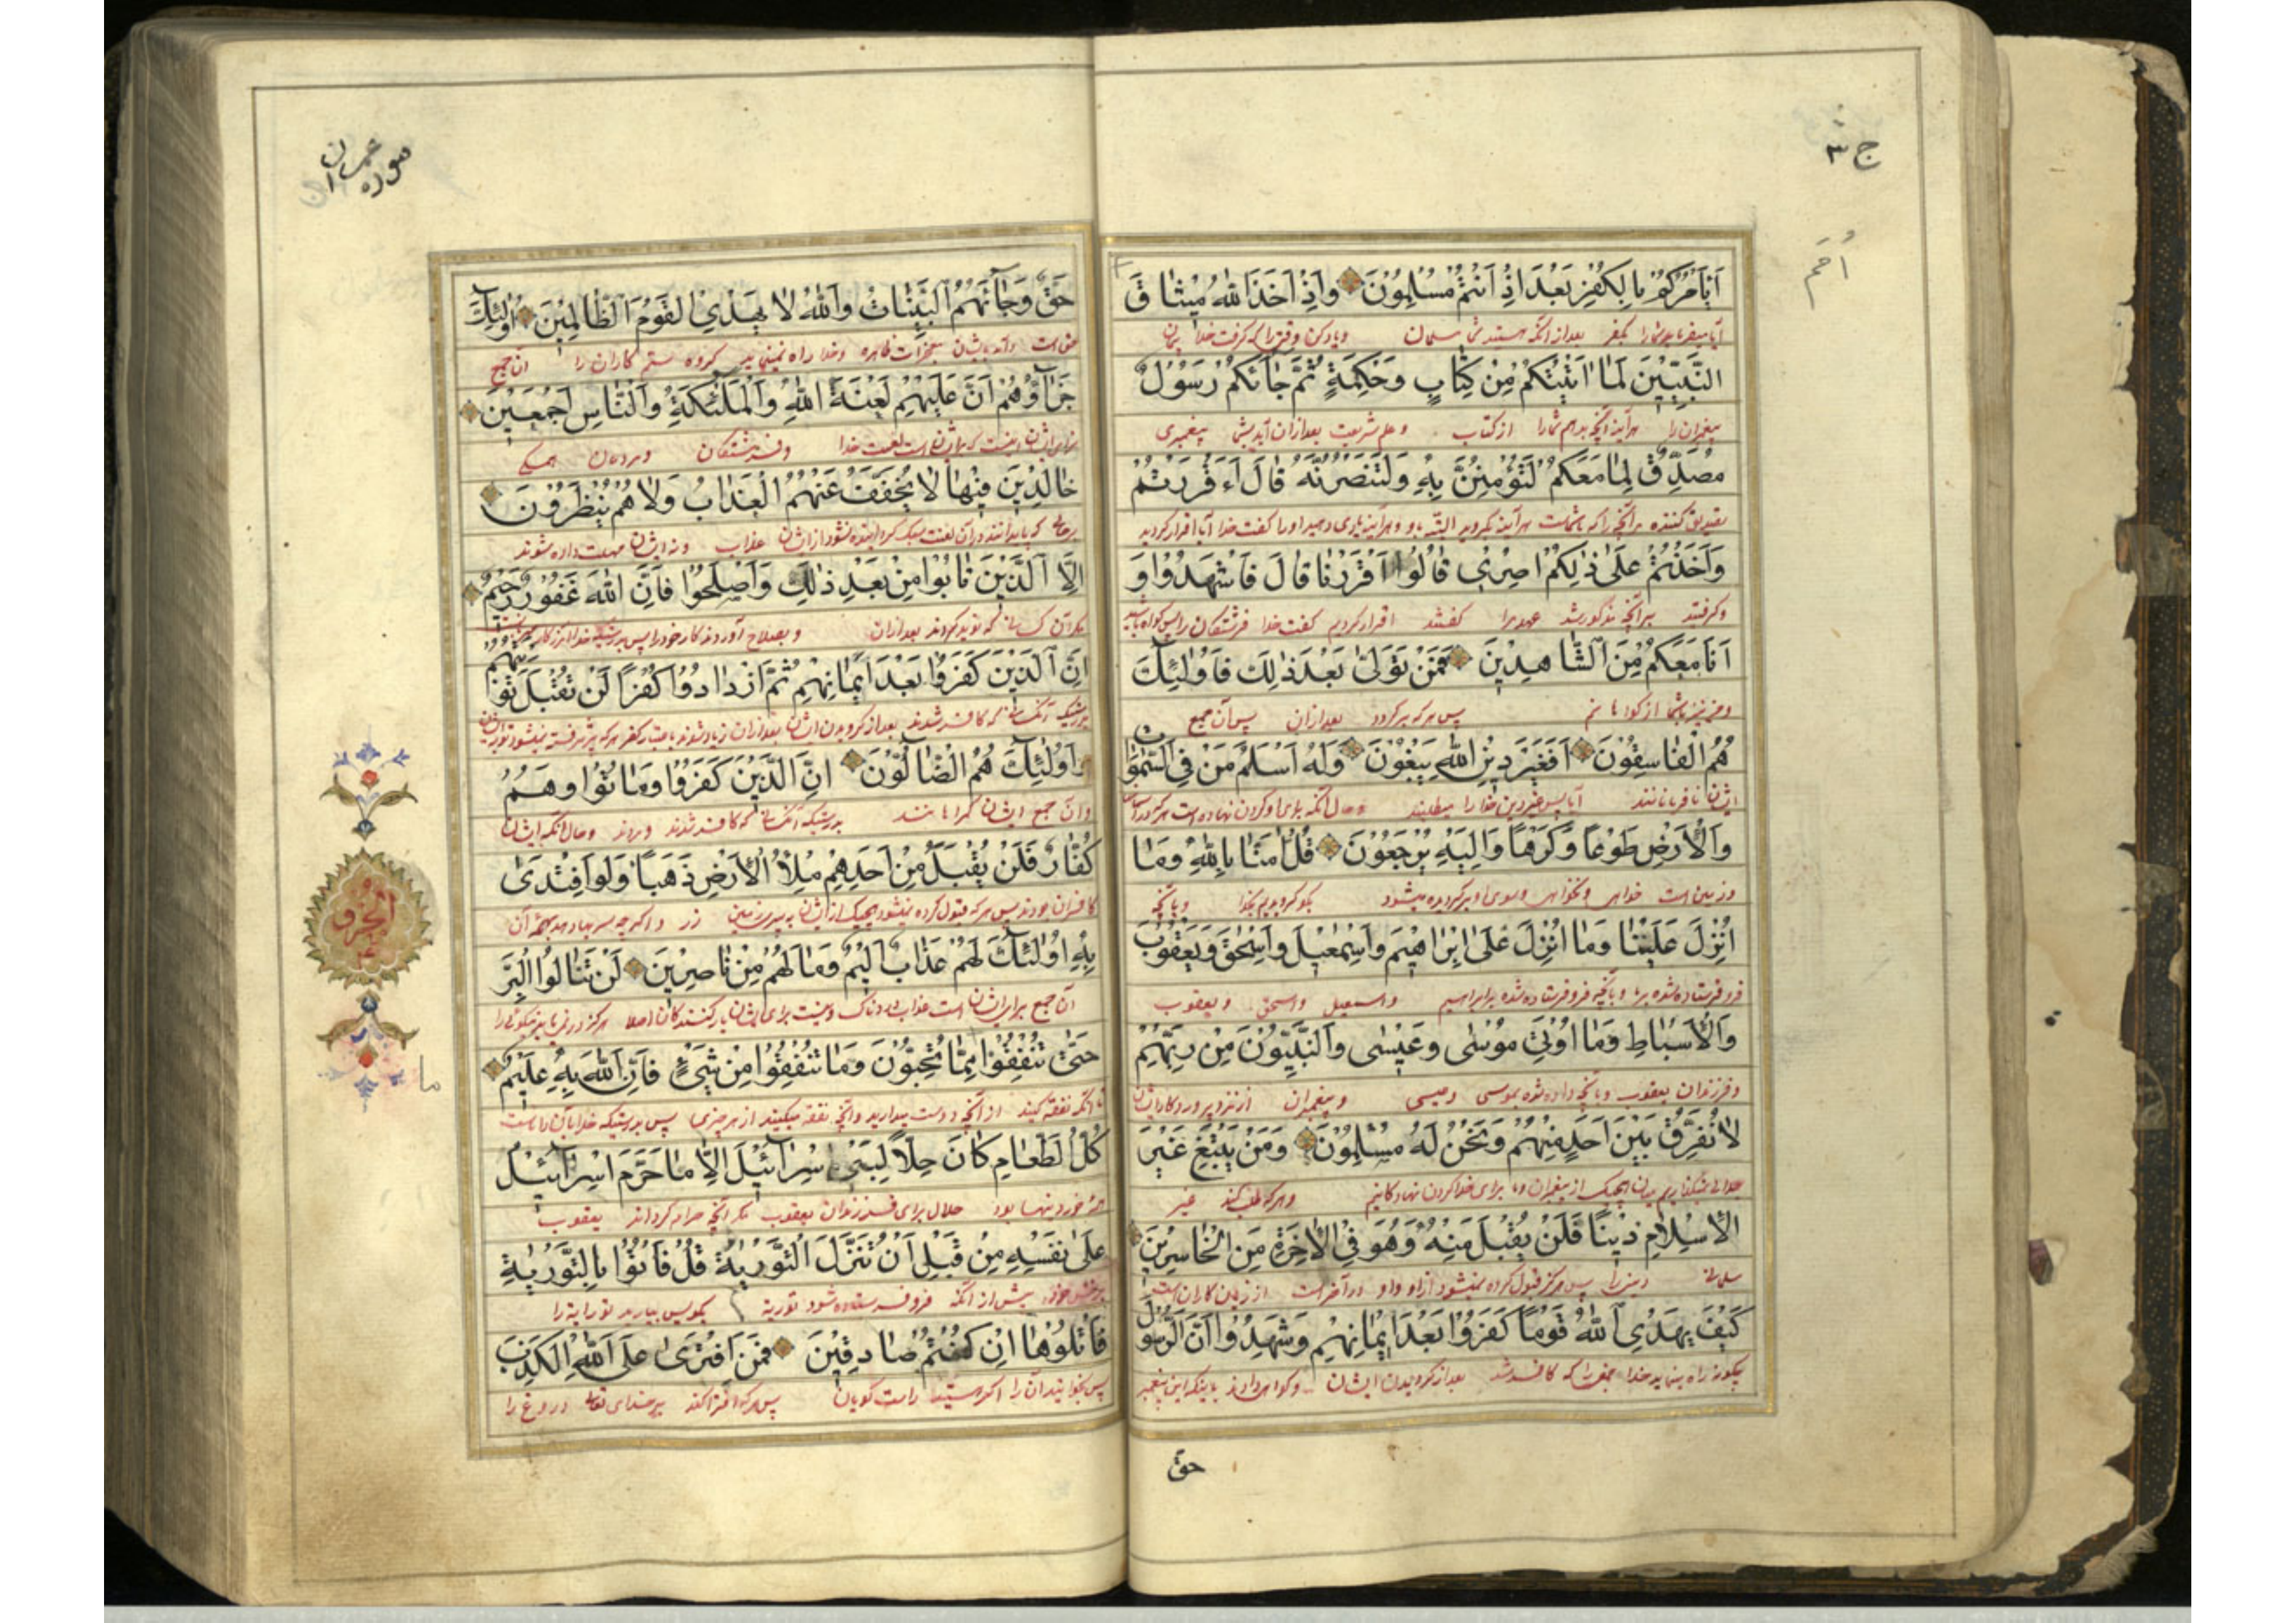 ج ٣
أَيَأْمُرُكُمْ بِالْكُفْرِ بَعْدَ إِذْ أَنْتُمْ مُسْلِمُونَ وَإِذْ أَخَذَ اللهُ مِيثَاقَ
آیا میفرماید شما را بکفر بعد از آنکه هستید شما مسلمان و یاد کن وقتی را که گرفت خدا پیمان
النَّبِيِّينَ لَمَا آتَيْتُكُمْ مِنْ كِتَابٍ وَحِكْمَةٍ ثُمَّ جَاءَكُمْ رَسُولٌ
پیغمبران را هر آینه آنچه بدهم شما را از کتاب و علم شریعت بعد از آن آید پیغمبری
مُصَدِّقٌ لِمَا مَعَكُمْ لَتُؤْمِنُنَّ بِهِ وَلَتَنْصُرُنَّهُ قَالَ أَءَقْرَرْتُمْ
تصدیق کننده مر آنچه را که با شماست هر آینه بگروید البته باو و هر آینه یاری دهید او را گفت خدا آیا اقرار کردید
وَأَخَذْتُمْ عَلَىٰ ذٰلِكُمْ إِصْرِي قَالُوا أَقْرَرْنَا قَالَ فَاشْهَدُوا وَ
و گرفتید بر آنچه مذکور شد عهد مرا گفتند اقرار کردیم گفت خدا فرشتگان را پس گواه باشید
أَنَا مَعَكُمْ مِنَ الشَّاهِدِينَ فَمَنْ تَوَلَّىٰ بَعْدَ ذٰلِكَ فَأُولٰئِكَ
و من نیز با شما از گواهانم پس هر که برگردد بعد از آن پس آن جمع
هُمُ الْفَاسِقُونَ أَفَغَيْرَ دِينِ اللهِ يَبْغُونَ وَلَهُ أَسْلَمَ مَنْ فِي السَّمٰوَاتِ
ایشان نافرمانانند آیا پس غیر دین خدا را میطلبند
وَالْأَرْضِ طَوْعًا وَكَرْهًا وَإِلَيْهِ يُرْجَعُونَ قُلْ آمَنَّا بِاللهِ وَمَا
و زمین است خواهی و نخواهی و بسوی او برگردیده میشود بگو گرویدیم بخدا و بآنچه
أُنْزِلَ عَلَيْنَا وَمَا أُنْزِلَ عَلَىٰ إِبْرَاهِيمَ وَإِسْمٰعِيلَ وَإِسْحٰقَ وَيَعْقُوبَ
فرو فرستاده شده بر ما و بآنچه فرو فرستاده شده بر ابراهیم و اسمعیل و اسحق و یعقوب
وَالْأَسْبَاطِ وَمَا أُوتِيَ مُوسَىٰ وَعِيسَىٰ وَالنَّبِيُّونَ مِنْ رَبِّهِمْ
و فرزندان یعقوب و بآنچه داده شده بموسی و عیسی و پیغمبران از نزد پروردگار ایشان
لَا نُفَرِّقُ بَيْنَ أَحَدٍ مِنْهُمْ وَنَحْنُ لَهُ مُسْلِمُونَ وَمَنْ يَبْتَغِ غَيْرَ
جدائی نیفکنیم میان هیچیک از پیغمبران و ما برای خدا گردن نهادگانیم و هر که طلب کند غیر
الْإِسْلَامِ دِينًا فَلَنْ يُقْبَلَ مِنْهُ وَهُوَ فِي الْآخِرَةِ مِنَ الْخَاسِرِينَ
دینی را پس هرگز قبول کرده نمیشود از او و او در آخرت از زیان کاران است
كَيْفَ يَهْدِي اللهُ قَوْمًا كَفَرُوا بَعْدَ إِيمَانِهِمْ وَشَهِدُوا أَنَّ الرَّسُولَ
چگونه راه بنماید خدا جمعی را که کافر شد بعد از گرویدن ایشان و گواهی دادند باینکه این پیغمبر
حق
سوره عمران
حَقٌّ وَجَاءَهُمُ الْبَيِّنَاتُ وَاللهُ لَا يَهْدِي الْقَوْمَ الظَّالِمِينَ أُولٰئِكَ
حق است و آمد بایشان معجزات ظاهره و خدا راه نمینماید گروه ستم کاران را آن جمع
جَزَاؤُهُمْ أَنَّ عَلَيْهِمْ لَعْنَةَ اللهِ وَالْمَلٰئِكَةِ وَالنَّاسِ أَجْمَعِينَ
سزای ایشان اینست که بر ایشان است لعنت خدا و فرشتگان و مردمان همگی
خَالِدِينَ فِيهَا لَا يُخَفَّفُ عَنْهُمُ الْعَذَابُ وَلَا هُمْ يُنْظَرُونَ
در آن لعنت سبک گردانیده نشود از ایشان عذاب و نه ایشان مهلت داده شوند
إِلَّا الَّذِينَ تَابُوا مِنْ بَعْدِ ذٰلِكَ وَأَصْلَحُوا فَإِنَّ اللهَ غَفُورٌ رَحِيمٌ
مگر آن کسانی که توبه کردند بعد از آن و بصلاح آوردند کار خود را پس بدرستیکه خدا
إِنَّ الَّذِينَ كَفَرُوا بَعْدَ إِيمَانِهِمْ ثُمَّ ازْدَادُوا كُفْرًا لَنْ تُقْبَلَ تَوْبَتُهُمْ
بدرستیکه آنکسانی که کافر شدند بعد از گرویدن ایشان بعد از آن زیاد شوند
وَأُولٰئِكَ هُمُ الضَّالُّونَ إِنَّ الَّذِينَ كَفَرُوا وَمَاتُوا وَهُمْ
و آن جمع ایشان گمراهانند بدرستیکه آنکسانی که کافر شدند و مردند و حال آنکه ایشان
كُفَّارٌ فَلَنْ يُقْبَلَ مِنْ أَحَدِهِمْ مِلْأُ الْأَرْضِ ذَهَبًا وَلَوِ افْتَدَىٰ
کافران بودند پس هرگز قبول کرده نمیشود از هیچیک از ایشان پری زمین زر و اگر چه
بِهِ أُولٰئِكَ لَهُمْ عَذَابٌ أَلِيمٌ وَمَا لَهُمْ مِنْ نَاصِرِينَ لَنْ تَنَالُوا الْبِرَّ
آن جمع برای ایشان است عذاب دردناک و نیست برای ایشان یاری کنندگان اصلا هرگز در نمی یابید نیکوئی را
حَتَّىٰ تُنْفِقُوا مِمَّا تُحِبُّونَ وَمَا تُنْفِقُوا مِنْ شَيْءٍ فَإِنَّ اللهَ بِهِ عَلِيمٌ
تا آنکه نفقه کنید از آنچه دوست میدارید و آنچه نفقه میکنید از هر چیزی پس بدرستیکه خدا بآن داناست
كُلُّ الطَّعَامِ كَانَ حِلًّا لِبَنِي إِسْرَائِيلَ إِلَّا مَا حَرَّمَ إِسْرَائِيلُ
همه خوردنیها بود حلال برای فرزندان یعقوب مگر آنچه حرام گردانید یعقوب
عَلَىٰ نَفْسِهِ مِنْ قَبْلِ أَنْ تُنَزَّلَ التَّوْرٰيةُ قُلْ فَأْتُوا بِالتَّوْرٰيةِ
بر نفس خود پیش از آنکه فرو فرستاده شود توریة بگو پس بیارید توریة را
فَاتْلُوهَا إِنْ كُنْتُمْ صَادِقِينَ فَمَنِ افْتَرَىٰ عَلَى اللهِ الْكَذِبَ
پس بخوانید آن را اگر هستید راست گویان پس هر که افترا کند بر خدای تعالی دروغ را
الحزب
ما